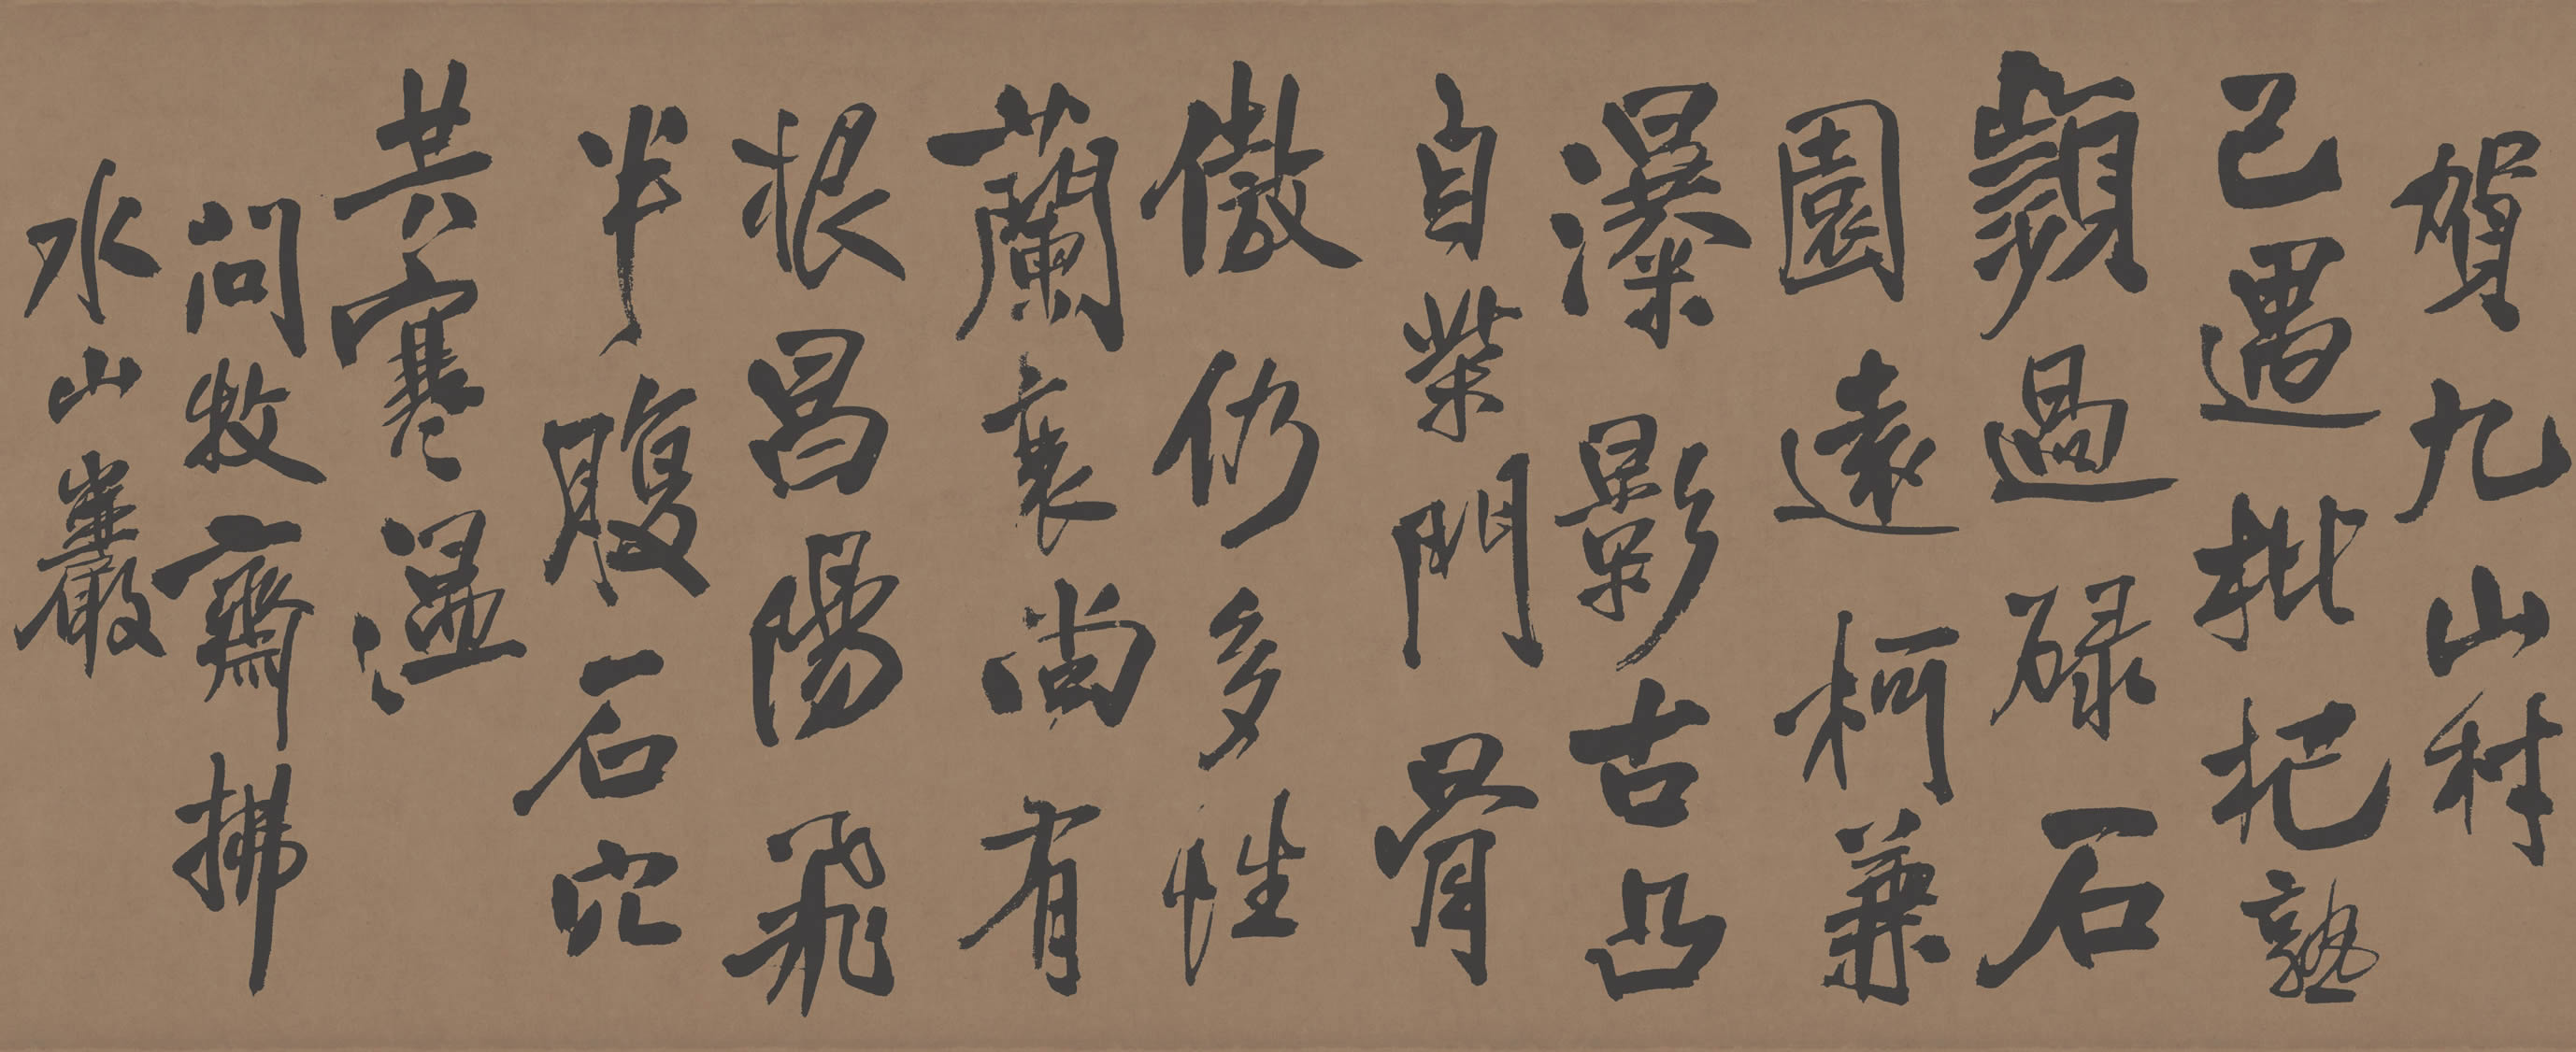 賀九山村
已遇枇杷熟
顥過碌石
園遠柯兼
瀑影古凸
自柴門骨
傲仍多性
蘭裏尚有
根昌陽飛
半腹石穴
共寒溫
問牧齋拂
水山巖